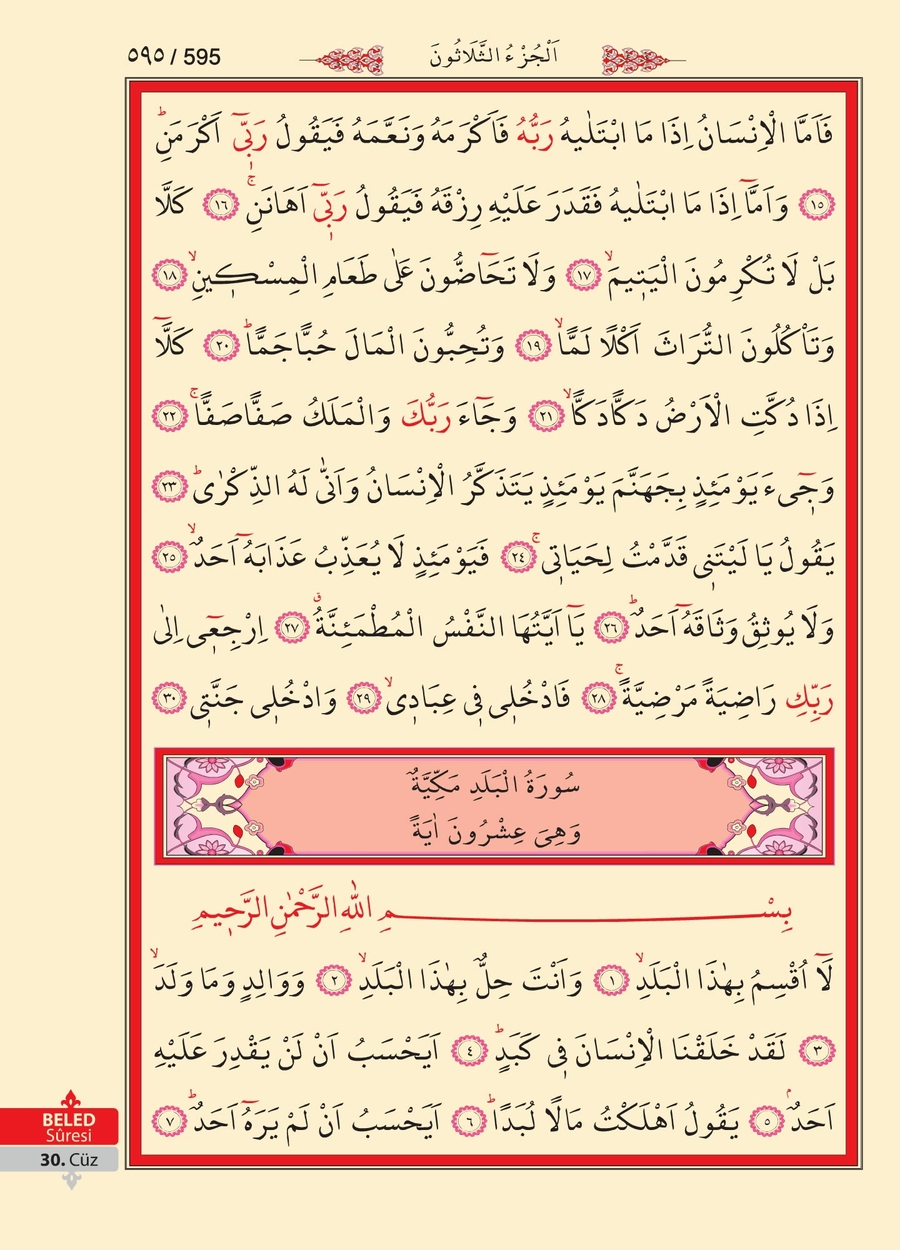 ٥٩٥ / 595
اَلْجُزْءُ الثَّلَاثُونَ
فَاَمَّا الْاِنْسَانُ اِذَا مَا ابْتَلٰيهُ رَبُّهُ فَاَكْرَمَهُ وَنَعَّمَهُ فَيَقُولُ رَبّ۪ٓي اَكْرَمَنِۜ
﴿١٥﴾ وَاَمَّٓا اِذَا مَا ابْتَلٰيهُ فَقَدَرَ عَلَيْهِ رِزْقَهُ فَيَقُولُ رَبّ۪ٓي اَهَانَنِۚ ﴿١٦﴾ كَلَّا
بَلْ لَا تُكْرِمُونَ الْيَت۪يمَۙ ﴿١٧﴾ وَلَا تَحَٓاضُّونَ عَلٰى طَعَامِ الْمِسْك۪ينِۙ ﴿١٨﴾
وَتَأْكُلُونَ التُّرَاثَ اَكْلًا لَمًّاۙ ﴿١٩﴾ وَتُحِبُّونَ الْمَالَ حُبًّا جَمًّاۜ ﴿٢٠﴾ كَلَّٓا
اِذَا دُكَّتِ الْاَرْضُ دَكًّا دَكًّاۙ ﴿٢١﴾ وَجَٓاءَ رَبُّكَ وَالْمَلَكُ صَفًّا صَفًّاۚ ﴿٢٢﴾
وَج۪ٓيءَ يَوْمَئِذٍ بِجَهَنَّمَ يَوْمَئِذٍ يَتَذَكَّرُ الْاِنْسَانُ وَاَنّٰى لَهُ الذِّكْرٰىۜ ﴿٢٣﴾
يَقُولُ يَا لَيْتَن۪ي قَدَّمْتُ لِحَيَات۪يۚ ﴿٢٤﴾ فَيَوْمَئِذٍ لَا يُعَذِّبُ عَذَابَهُٓ اَحَدٌۙ ﴿٢٥﴾
وَلَا يُوثِقُ وَثَاقَهُٓ اَحَدٌۜ ﴿٢٦﴾ يَٓا اَيَّتُهَا النَّفْسُ الْمُطْمَئِنَّةُۗ ﴿٢٧﴾ اِرْجِع۪ٓي اِلٰى
رَبِّكِ رَاضِيَةً مَرْضِيَّةًۚ ﴿٢٨﴾ فَادْخُل۪ي ف۪ي عِبَاد۪يۙ ﴿٢٩﴾ وَادْخُل۪ي جَنَّت۪ي ﴿٣٠﴾
سُورَةُ الْبَلَدِ مَكِّيَّةٌ
وَهِيَ عِشْرُونَ اٰيَةً
بِسْــــــــــمِ اللّٰهِ الرَّحْمٰنِ الرَّح۪يمِ
لَٓا اُقْسِمُ بِهٰذَا الْبَلَدِۙ ﴿١﴾ وَاَنْتَ حِلٌّ بِهٰذَا الْبَلَدِۙ ﴿٢﴾ وَوَالِدٍ وَمَا وَلَدَۙ
﴿٣﴾ لَقَدْ خَلَقْنَا الْاِنْسَانَ ف۪ي كَبَدٍۜ ﴿٤﴾ اَيَحْسَبُ اَنْ لَنْ يَقْدِرَ عَلَيْهِ
اَحَدٌۢ ﴿٥﴾ يَقُولُ اَهْلَكْتُ مَالًا لُبَدًاۜ ﴿٦﴾ اَيَحْسَبُ اَنْ لَمْ يَرَهُٓ اَحَدٌۜ ﴿٧﴾
BELED
Sûresi
30. Cüz